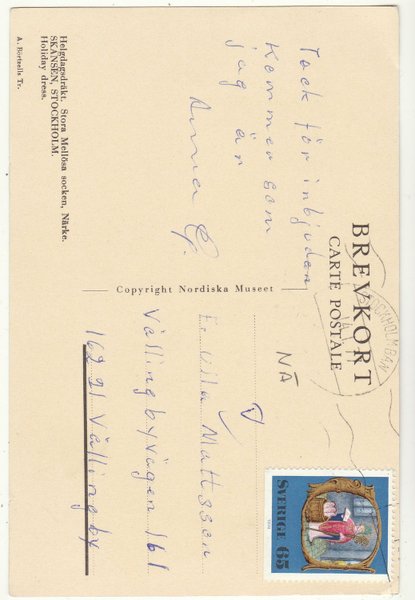 BREVKORT
CARTE POSTALE
Tack för inbjudan
Kommer som
jag är
Anna G.
Helgdagsdräkt. Stora Mellösa socken, Närke.
SKANSEN, STOCKHOLM.
Holiday dress.
A. Börtzells Tr.
Copyright Nordiska Museet
NÄ
Ulla Mattsson
Vällingbyvägen 161
162 21 Vällingby
SVERIGE 65